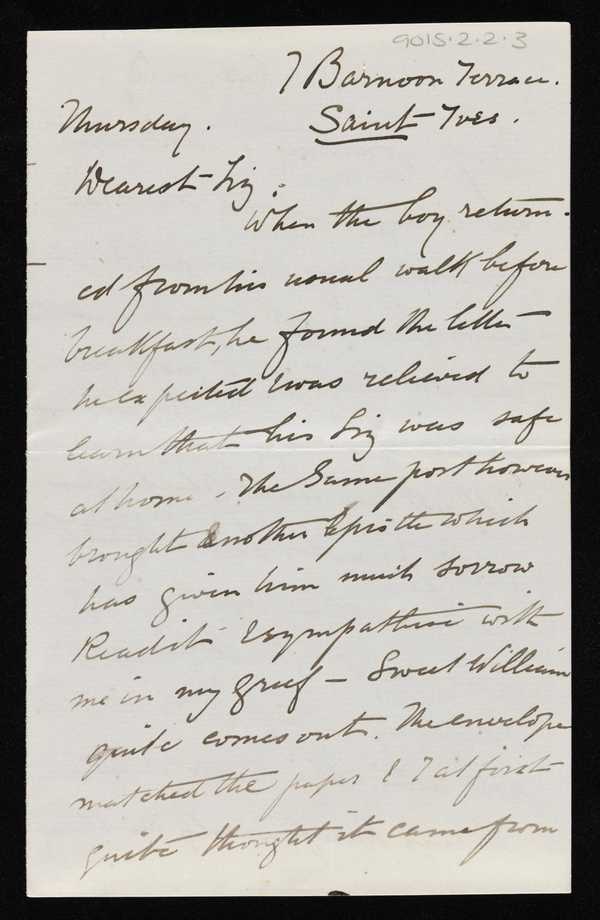 9015.2.2.3
7 Barnoon Terrace.
Thursday. Saint Ives.
Dearest Liz:
When the boy return-
ed from his usual walk before
breakfast, he found the letter
he expected & was relieved to
learn that his Liz was safe
at home. The Same post however
brought another Epistle which
has given him much sorrow
Read it & sympathise with
me in my grief – Sweet William
quite comes out. The envelope
matched the paper & I at first
quite thought it came from